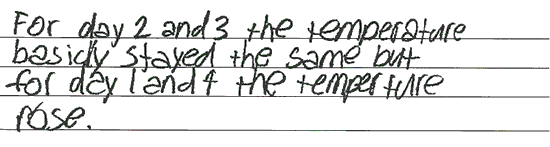 For day 2 and 3 the temperature
basicly stayed the same but
for day 1 and 4 the temperture
rose.